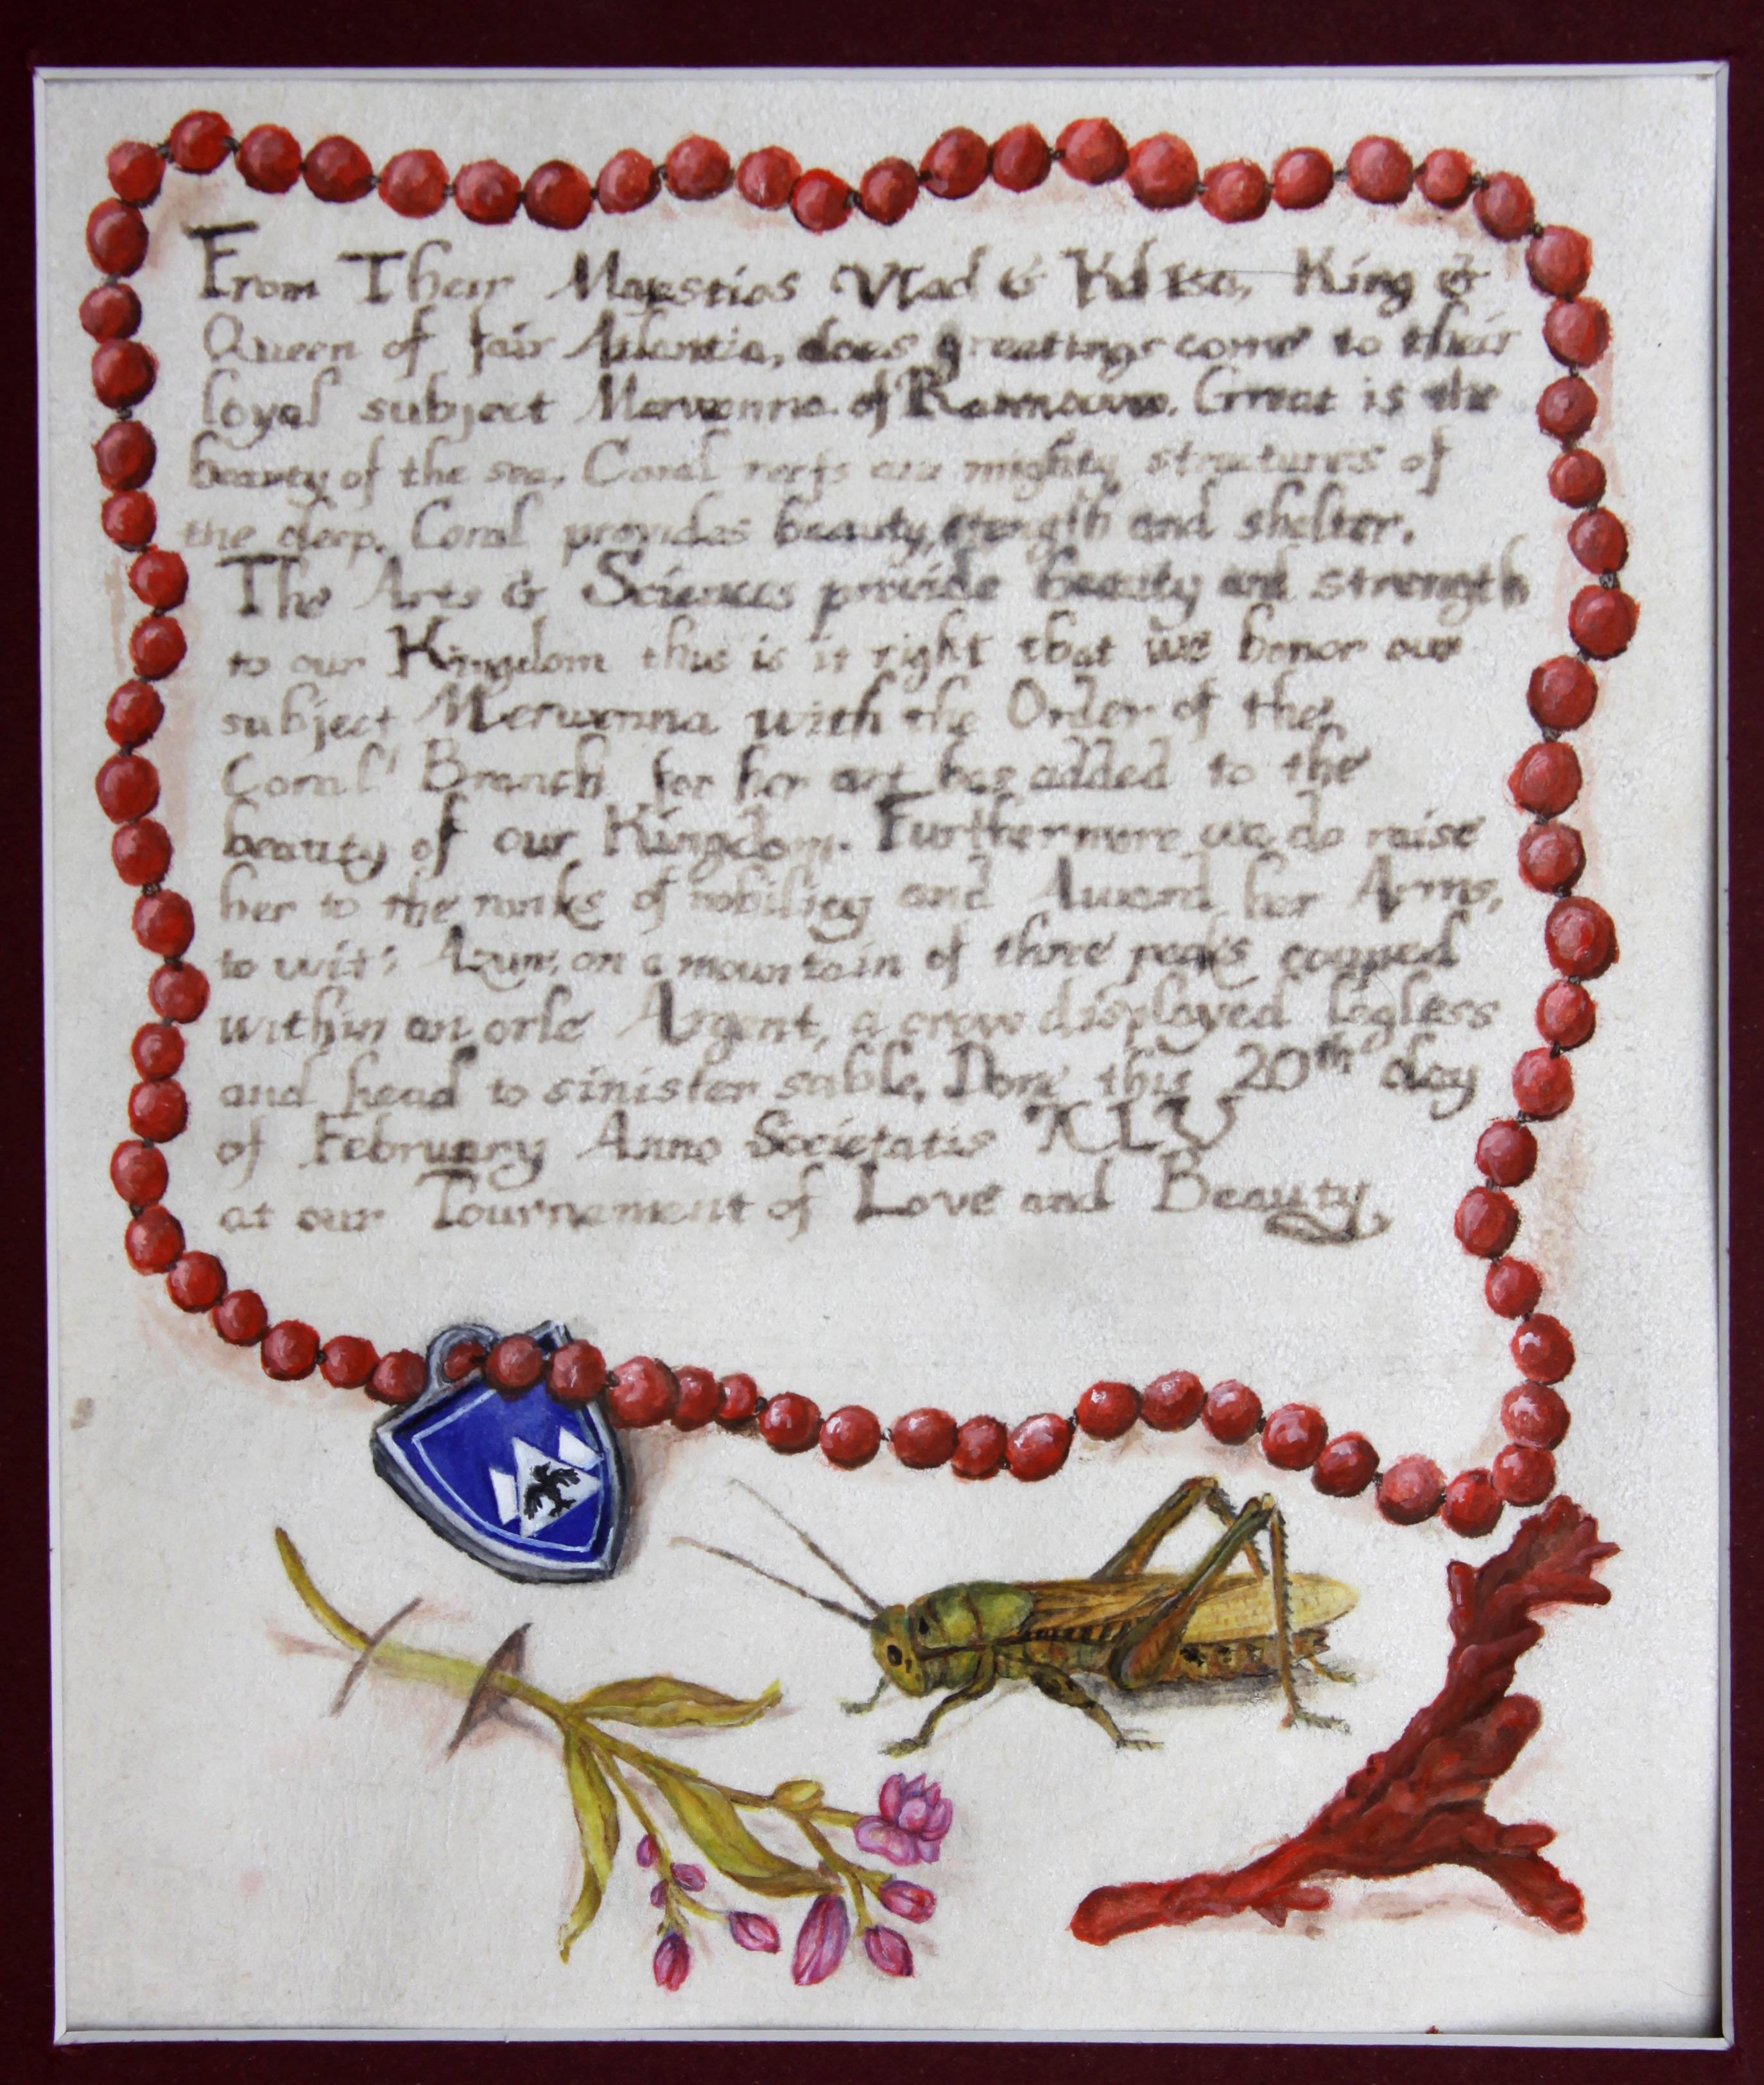 From Their Majesties Vlad & Kriska, King &
Queen of fair Atlantia, does greetings come to their
loyal subject Merwenna of Rannouw. Great is the
beauty of the sea. Coral reefs are mighty structures of
the deep. Coral provides beauty, strength and shelter.
The Arts & Sciences provide beauty and strength
to our Kingdom thus is it right that we honor our
subject Merwenna with the Order of the
Coral Branch for her art has added to the
beauty of our Kingdom. Furthermore we do raise
her to the ranks of nobility and Award her Arms,
to wit: Azure, on a mountain of three peaks couped
within an orle Argent, a crow displayed legless
and head to sinister sable. Done this 20th day
of February Anno Societatis XLV
at our Tournament of Love and Beauty